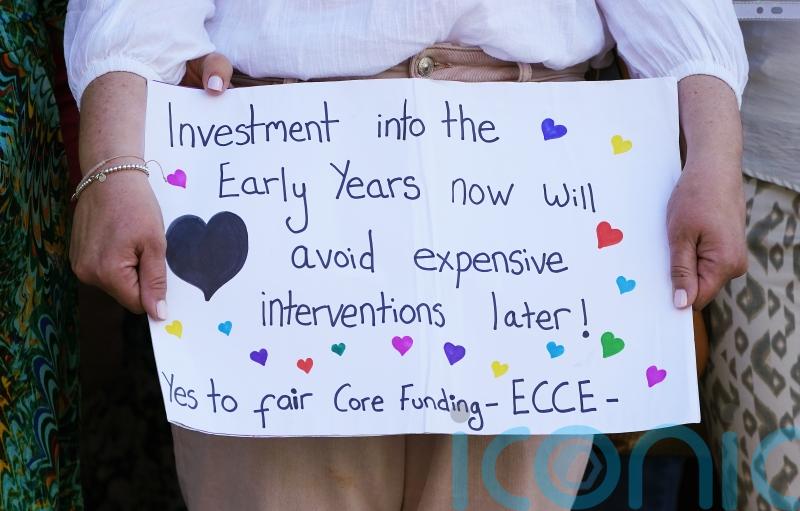 Investment into the
Early Years now will
avoid expensive
interventions later!
Yes to fair Core Funding - ECCE -
iconic